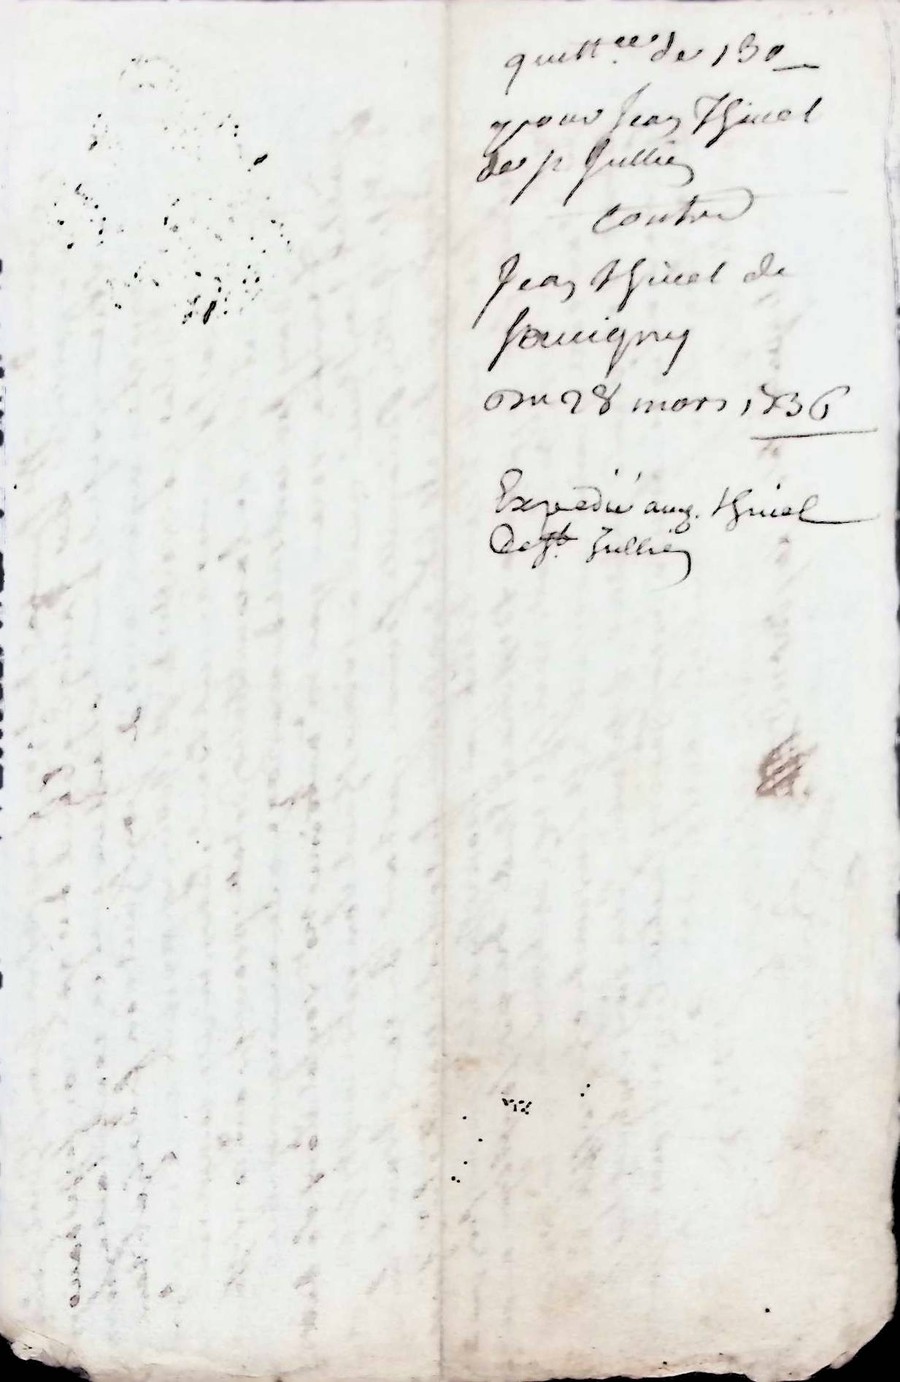 quitt.ce de 130
pour Jean Thinel
de st Jullien
contre
Jean Thinel de
Souvigny
du 28 mars 1736
Expedié aud. Thinel
De st. Jullien